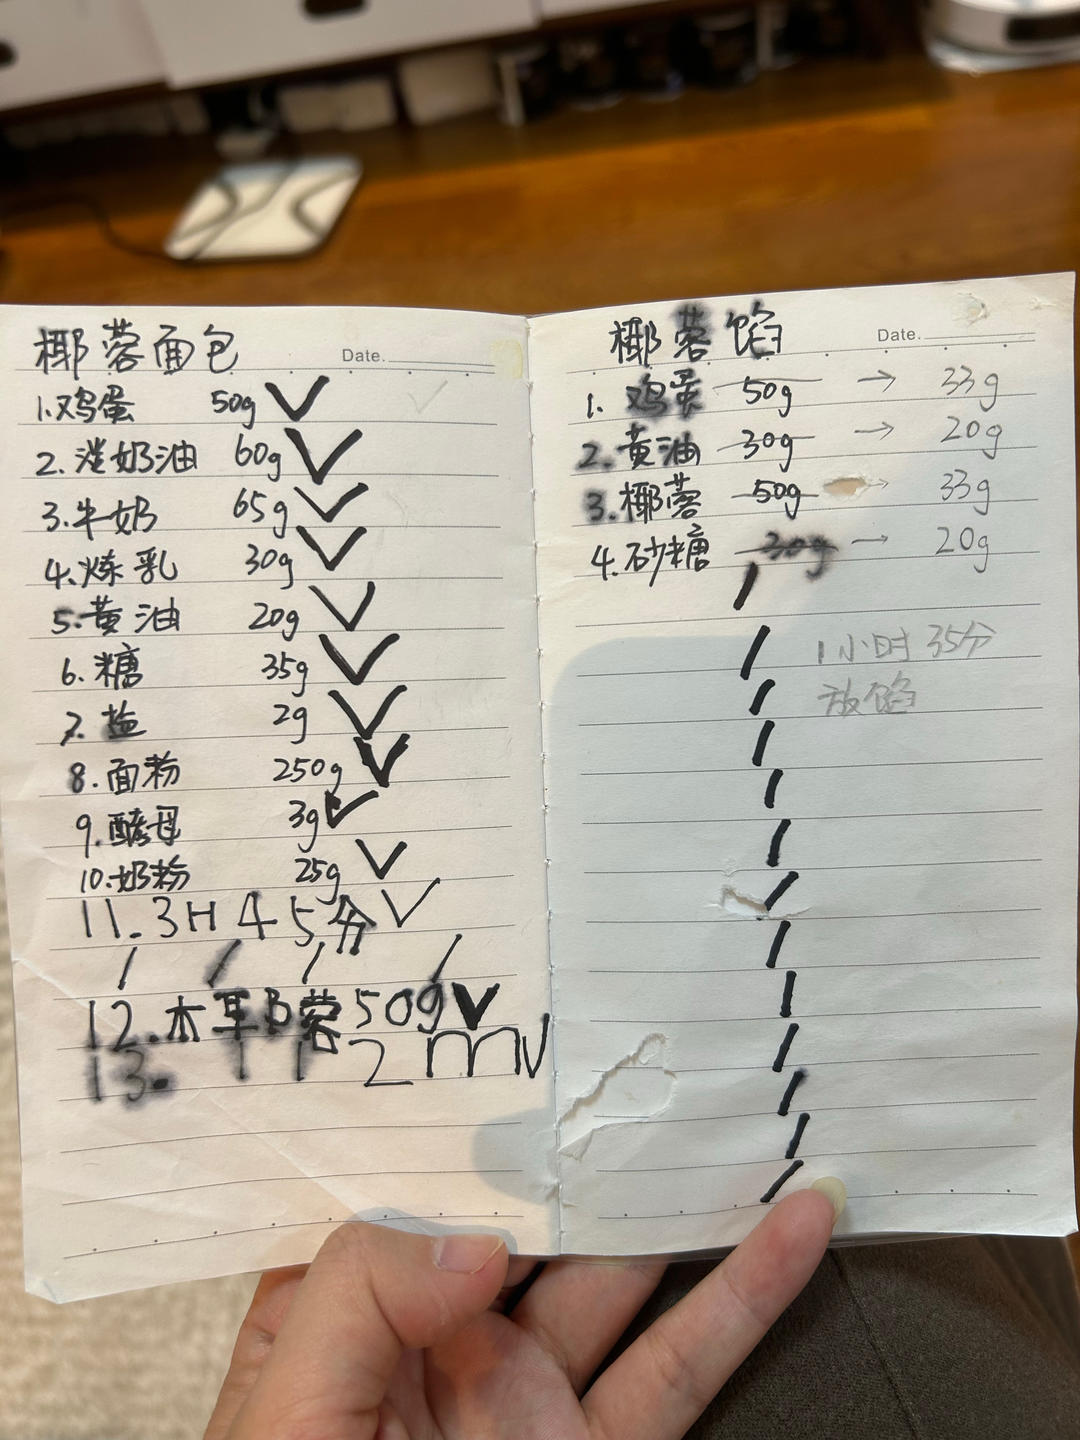 椰蓉面包
Date.
1.鸡蛋 50g ✓
2.淡奶油 60g ✓
3.牛奶 65g ✓
4.炼乳 30g ✓
5.黄油 20g ✓
6.糖 35g ✓
7.盐 2g ✓
8.面粉 250g ✓
9.酵母 3g ✓
10.奶粉 25g ✓
11.3H45分 ✓
12.木耳B蓉50g ✓
13. 112mm
椰蓉馅
Date.
1.鸡蛋 50g → 33g
2.黄油 30g → 20g
3.椰蓉 50g → 33g
4.砂糖 30g → 20g
1小时35分
放馅